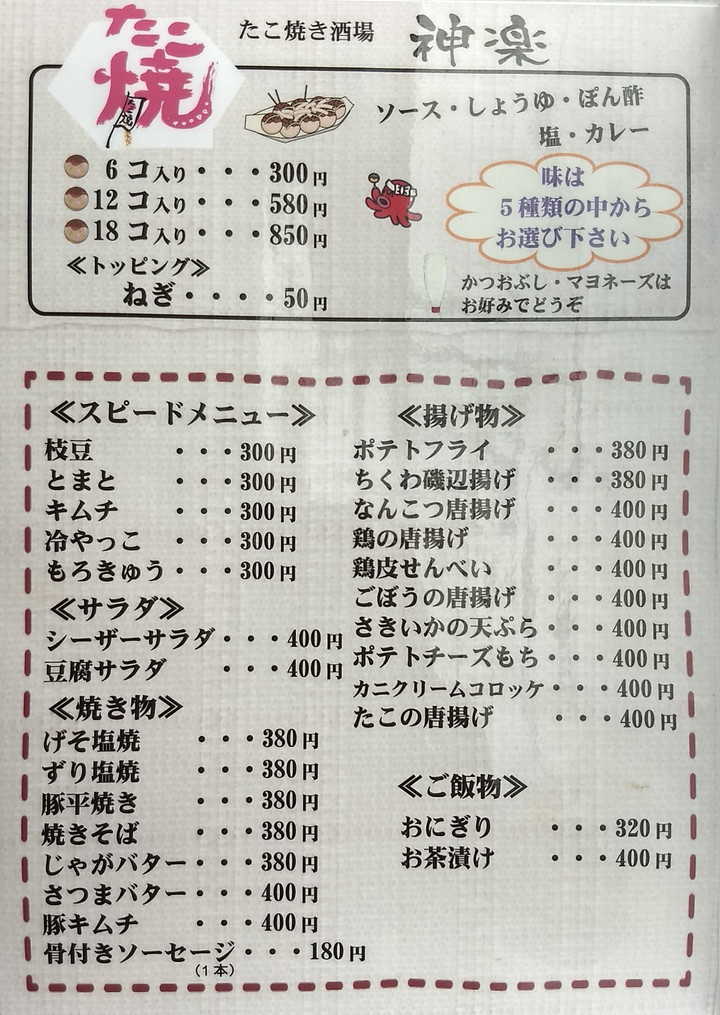 たこ焼
たこ焼き酒場 神楽
ソース・しょうゆ・ぽん酢
塩・カレー
6コ入り・・・300円
12コ入り・・・580円
18コ入り・・・850円
≪トッピング≫
ねぎ・・・・50円
味は
5種類の中から
お選び下さい
かつおぶし・マヨネーズは
お好みでどうぞ
≪スピードメニュー≫
枝豆 ・・・300円
とまと ・・・300円
キムチ ・・・300円
冷やっこ ・・・300円
もろきゅう・・・300円
≪サラダ≫
シーザーサラダ・・・400円
豆腐サラダ ・・・400円
≪焼き物≫
げそ塩焼 ・・・380円
ずり塩焼 ・・・380円
豚平焼き ・・・380円
焼きそば ・・・380円
じゃがバター・・・380円
さつまバター・・・400円
豚キムチ ・・・400円
骨付きソーセージ・・・180円
(1本)
≪揚げ物≫
ポテトフライ ・・・380円
ちくわ磯辺揚げ ・・・380円
なんこつ唐揚げ ・・・400円
鶏の唐揚げ ・・・400円
鶏皮せんべい ・・・400円
ごぼうの唐揚げ ・・・400円
さきいかの天ぷら・・・400円
ポテトチーズもち・・・400円
カニクリームコロッケ・・・400円
たこの唐揚げ ・・・400円
≪ご飯物≫
おにぎり ・・・320円
お茶漬け ・・・400円